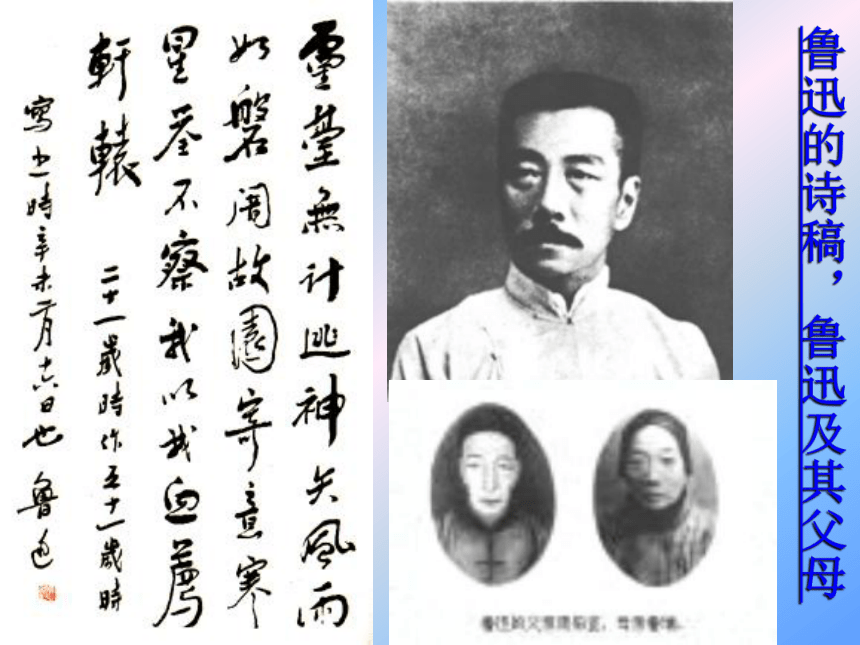 鲁迅的诗稿，鲁迅及其父母
靈臺無計逃神矢風雨
如磐闇故園寄意寒
星荃不察我以我血薦
軒轅 二十一歲時作五十一歲時
寫之時辛未二月十六日也 魯迅
鲁迅的父亲周伯宜，母亲鲁瑞。